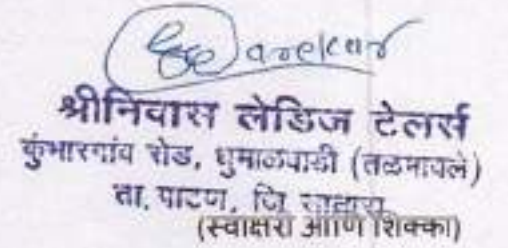 श्रीनिवास लेडिज टेलर्स
कुंभारगांव रोड, धुमाळवाडी (तळमावले)
ता. पाटण, जि. सातारा
(स्वाक्षरी आणि शिक्का)